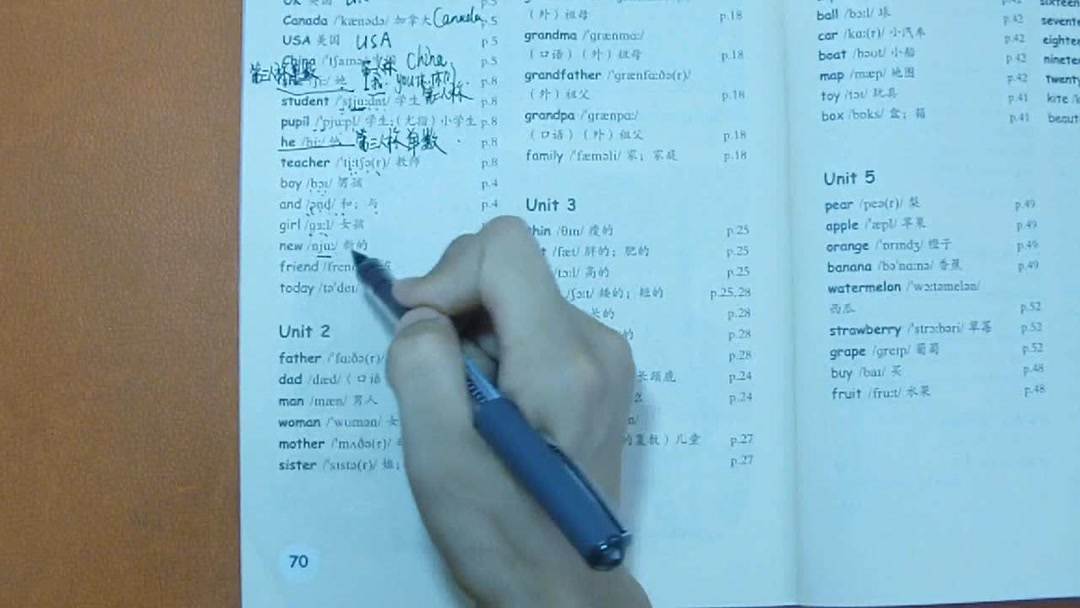 Canada /ˈkænədə/ 加拿大 Canada p.5
USA 美国 USA p.5
China p.5
第三人称单数 China
you 你, 你们
p.8
student /ˈstju:dnt/ 学生 第二人称 p.8
pupil /ˈpju:pl/ 学生;(尤指)小学生 p.8
he /hi:/ 他 第三人称单数 p.8
teacher /ˈti:tʃə(r)/ 教师 p.8
boy /bɔɪ/ 男孩 p.4
and /ənd/ 和;与 p.4
girl /gɜ:l/ 女孩
new /nju:/ 新的
friend
today /təˈdeɪ/
Unit 2
father /ˈfɑ:ðə(r)/
dad /dæd/ (口语
man /mæn/ 男人
woman /ˈwʊmən/ 女
mother /ˈmʌðə(r)/
sister /ˈsɪstə(r)/ 姐;
70
(外)祖母 p.18
grandma /ˈgrænmɑ:/
(口语)(外)祖母 p.18
grandfather /ˈgrænfɑ:ðə(r)/
(外)祖父 p.18
grandpa /ˈgrænpɑ:/
(口语)(外)祖父 p.18
family /ˈfæməli/ 家;家庭 p.18
Unit 3
/θɪn/ 瘦的 p.25
/fæt/ 胖的;肥的 p.25
/tɔ:l/ 高的 p.25
/ʃɔ:t/ 矮的;短的 p.25,28
长的 p.28
的 p.28
p.28
长颈鹿 p.24
p.24
的复数)儿童 p.27
p.27
ball /bɔ:l/ 球 p.42
car /kɑ:(r)/ 小汽车 p.42
boat /bəʊt/ 小船 p.42
map /mæp/ 地图 p.42
toy /tɔɪ/ 玩具 p.41
box /bɒks/ 盒;箱 p.41
Unit 5
pear /peə(r)/ 梨 p.49
apple /ˈæpl/ 苹果 p.49
orange /ˈɒrɪndʒ/ 橙子 p.49
banana /bəˈnɑ:nə/ 香蕉 p.49
watermelon /ˈwɔ:təmelən/
西瓜 p.52
strawberry /ˈstrɔ:bəri/ 草莓 p.52
grape /greɪp/ 葡萄 p.52
buy /baɪ/ 买 p.48
fruit /fru:t/ 水果 p.48
sixteen
sevente
eightee
ninetee
twenty
kite /k
beaut